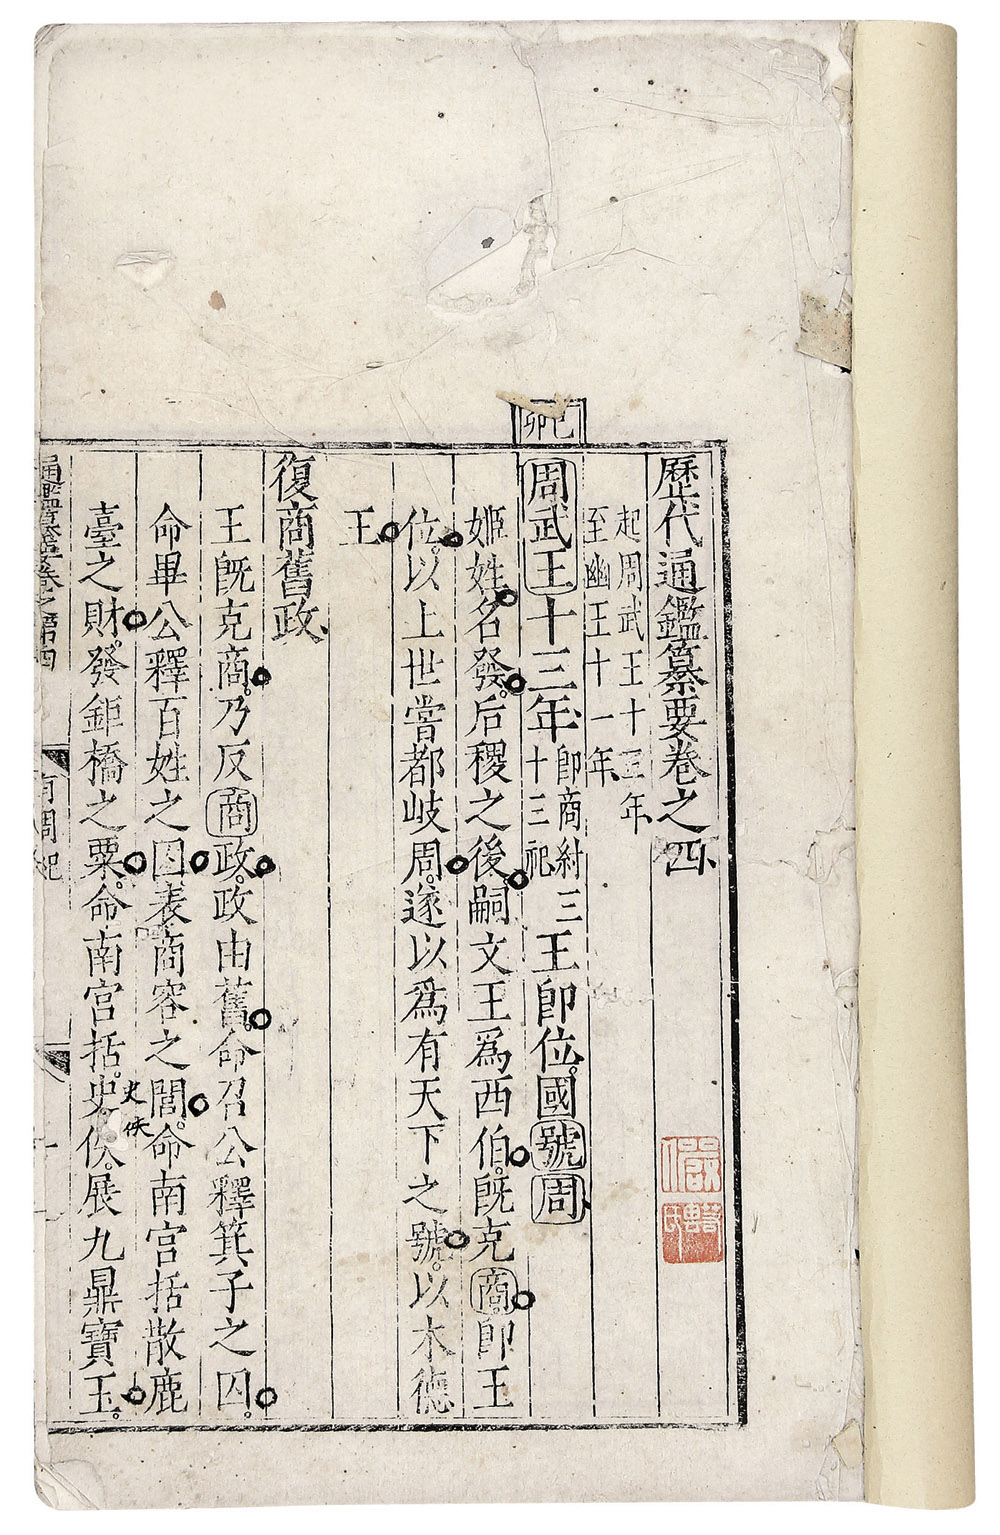 歷代通鑑纂要卷之四
起周武王十三年
至幽王十一年
己卯
周武王十三年
即商紂三
十三祀
王即位國號周
姬姓名發后稷之後嗣文王爲西伯既克商即王
位以上世嘗都岐周遂以爲有天下之號以木德
王
復商舊政
王既克商乃反商政政由舊命召公釋箕子之囚
命畢公釋百姓之囚表商容之閭命南宮括散鹿
臺之財發鉅橋之粟命南宮括史佚展九鼎寶玉
史佚
通鑑纂要卷之第四
有周紀